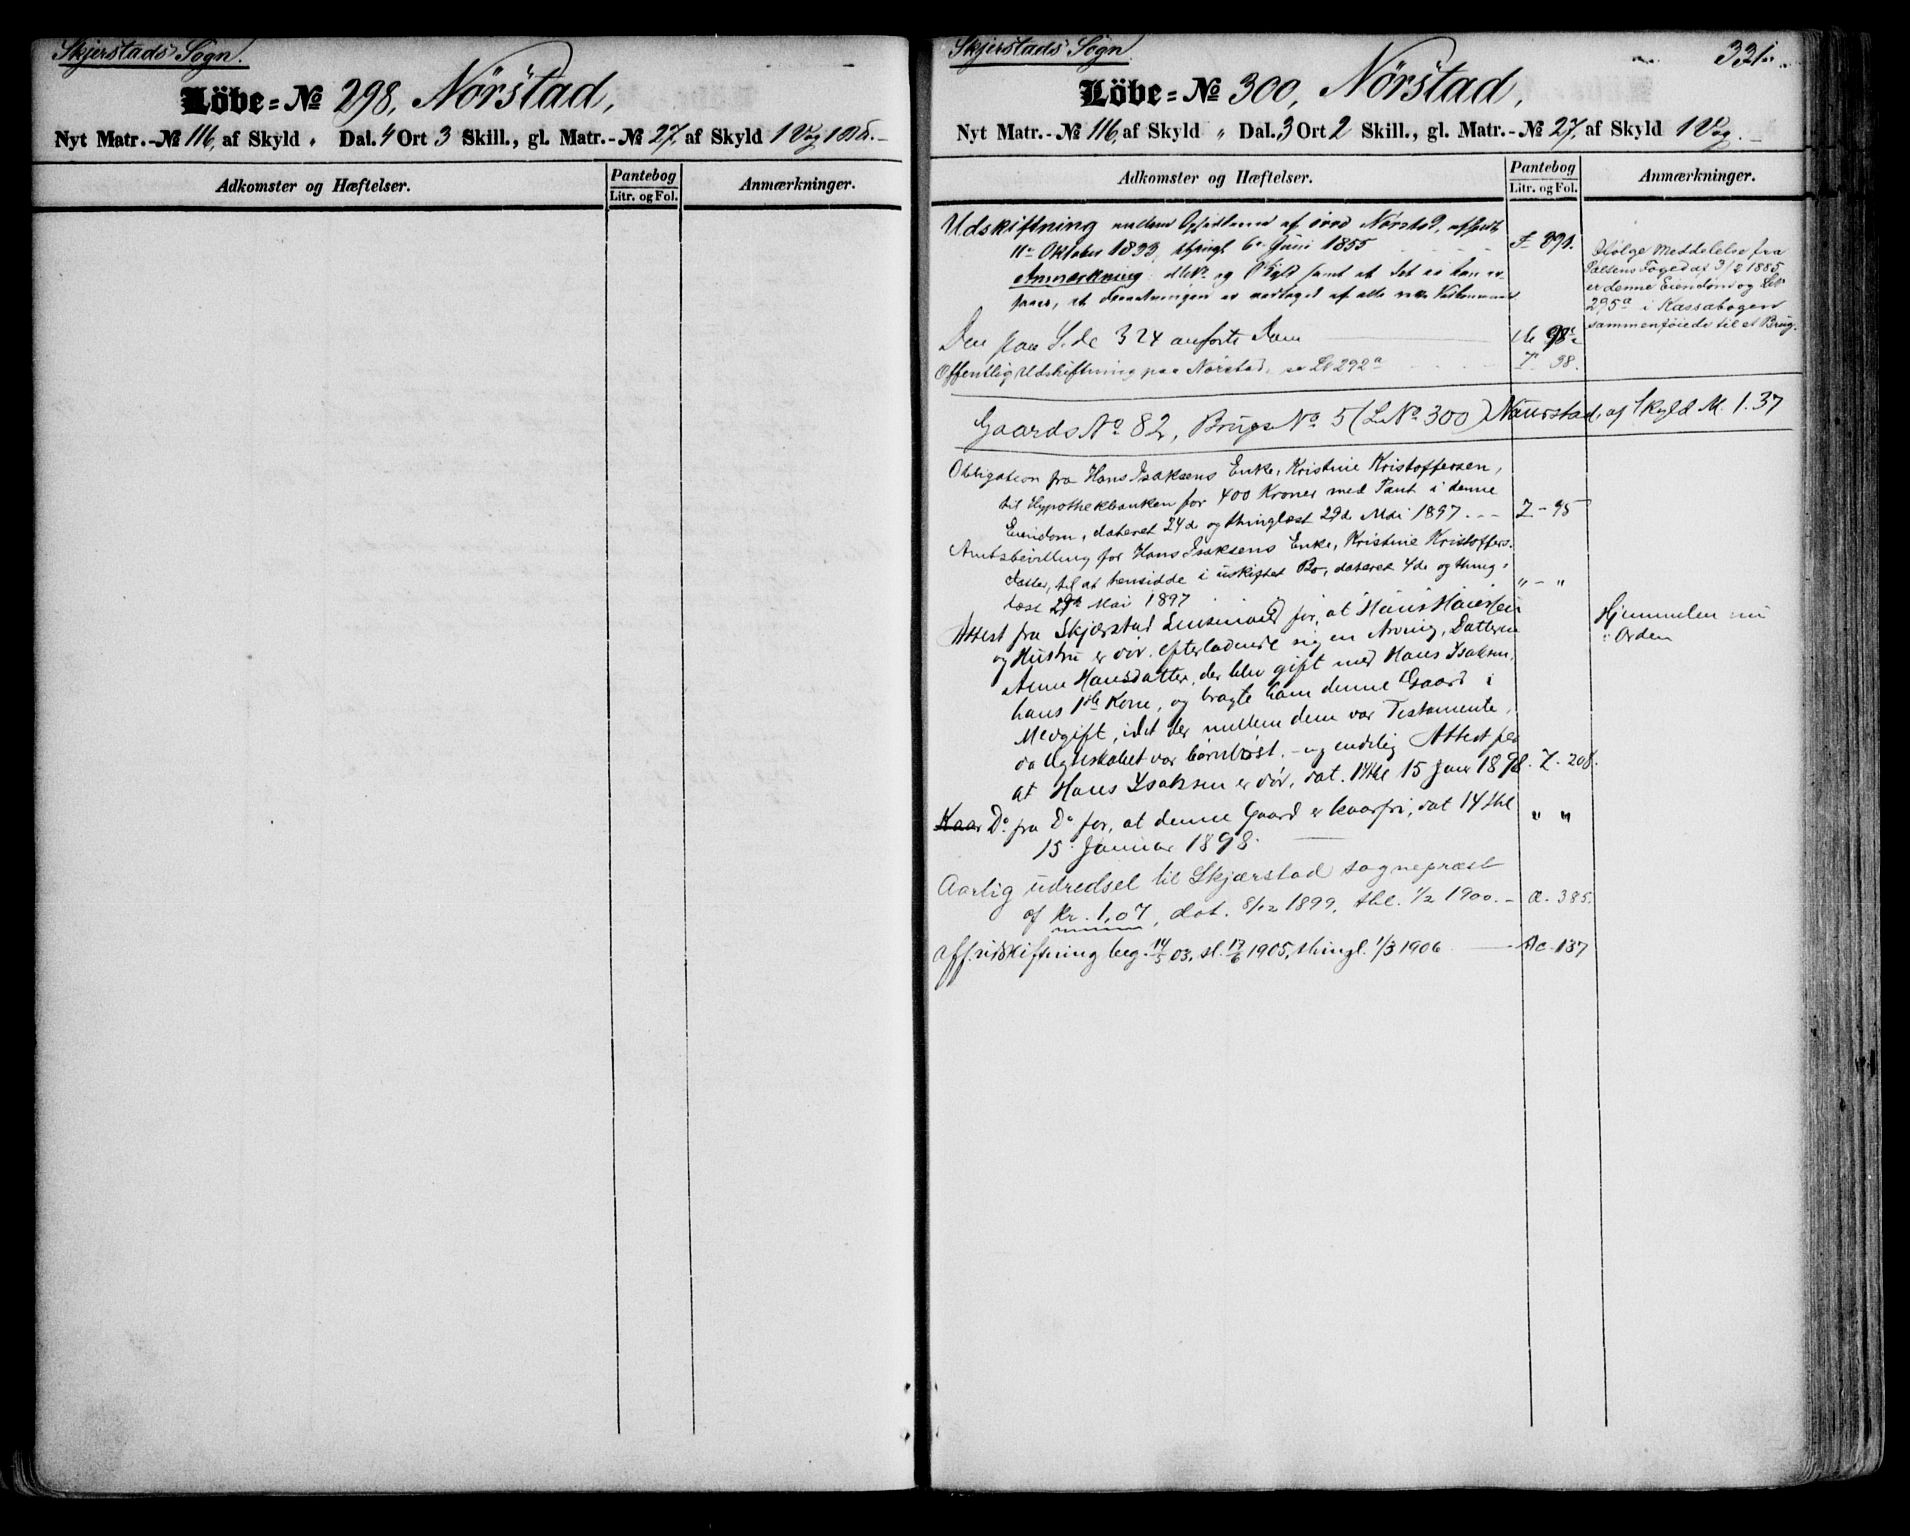 Skjerstads Sogn.
Löbe=No 298, Nörstad,
Nyt Matr.-No 116, af Skyld „ Dal. 4 Ort 3 Skill., gl. Matr.-No 27, af Skyld 1 Vog
Adkomster og Hæftelser.
Pantebog
Litr. og Fol.
Anmærkninger.
Skjerstads Sogn
331.
Löbe=No 300, Nörstad,
Nyt Matr.-No 116, af Skyld „ Dal. 3 Ort 2 Skill., gl. Matr.-No 27, af Skyld 1 Vog.
Adkomster og Hæftelser.
Pantebog
Litr. og Fol.
Anmærkninger.
Udskiftning mellem Opsidderne af Nörstad,
11te Oktober 1833, thingl. 6te Juni 1855
Anmærkning: og samt at det ei kan
at Forretningen er vedtaget af alle
Den paa Side 324 anførte Dom
Offentlig Udskiftning paa Nörstad, se Lb 292a
I. 38.
Ifølge Meddelelse fra
Saltens Foged af 3/2 1885
er denne Eiendom og Lb
295a i Kassabogen
sammenføiede til et Brug.
Gaards No 82, Brugs No 5 (L No 300) Naurstad, af Skyld M. 1.37
Obligation fra Hans Isaksens Enke, Kristine Kristoffersen,
til Hypothekbanken for 400 Kroner med Pant i denne
Eiendom, dateret 24de og thinglæst 29de Mai 1897. Z - 95
Amtsbevilling for Hans Isaksens Enke, Kristine Kristoffers-
datter, til at hensidde i uskiftet Bo, dateret 4de og thing-
læst 29de Mai 1897 „ - „
Attest fra Skjærstad Lensmand for, at Hans
og Hustru er død, efterladende sig en Arving, Datteren
Anne Hansdatter, der blev gift med Hans Isaksen,
hans 1ste Kone, og bragte ham denne Gaard i
Medgift, idet der mellem dem var Testamente,
da Ægteskabet var børnløst. - og endelig Attest paa
at Hans Isaksen er død, dat. 14 thl 15 Janr 1898. Z. 208.
Hjemmelen nu
i Orden
Kaar Do fra Do for, at denne Gaard er kaarfri, dat 14 thl
15. Januar 1898. „ „
Aarlig udredsel til Skjærstad sognepræst
af Kr. 1,07, dat. 8/12 1899, thl. 1/2 1900. - Æ. 385.
Off. udskiftning beg. 14/5 03, sl. 17/6 1905, thingl. 1/3 1906 Ac 137